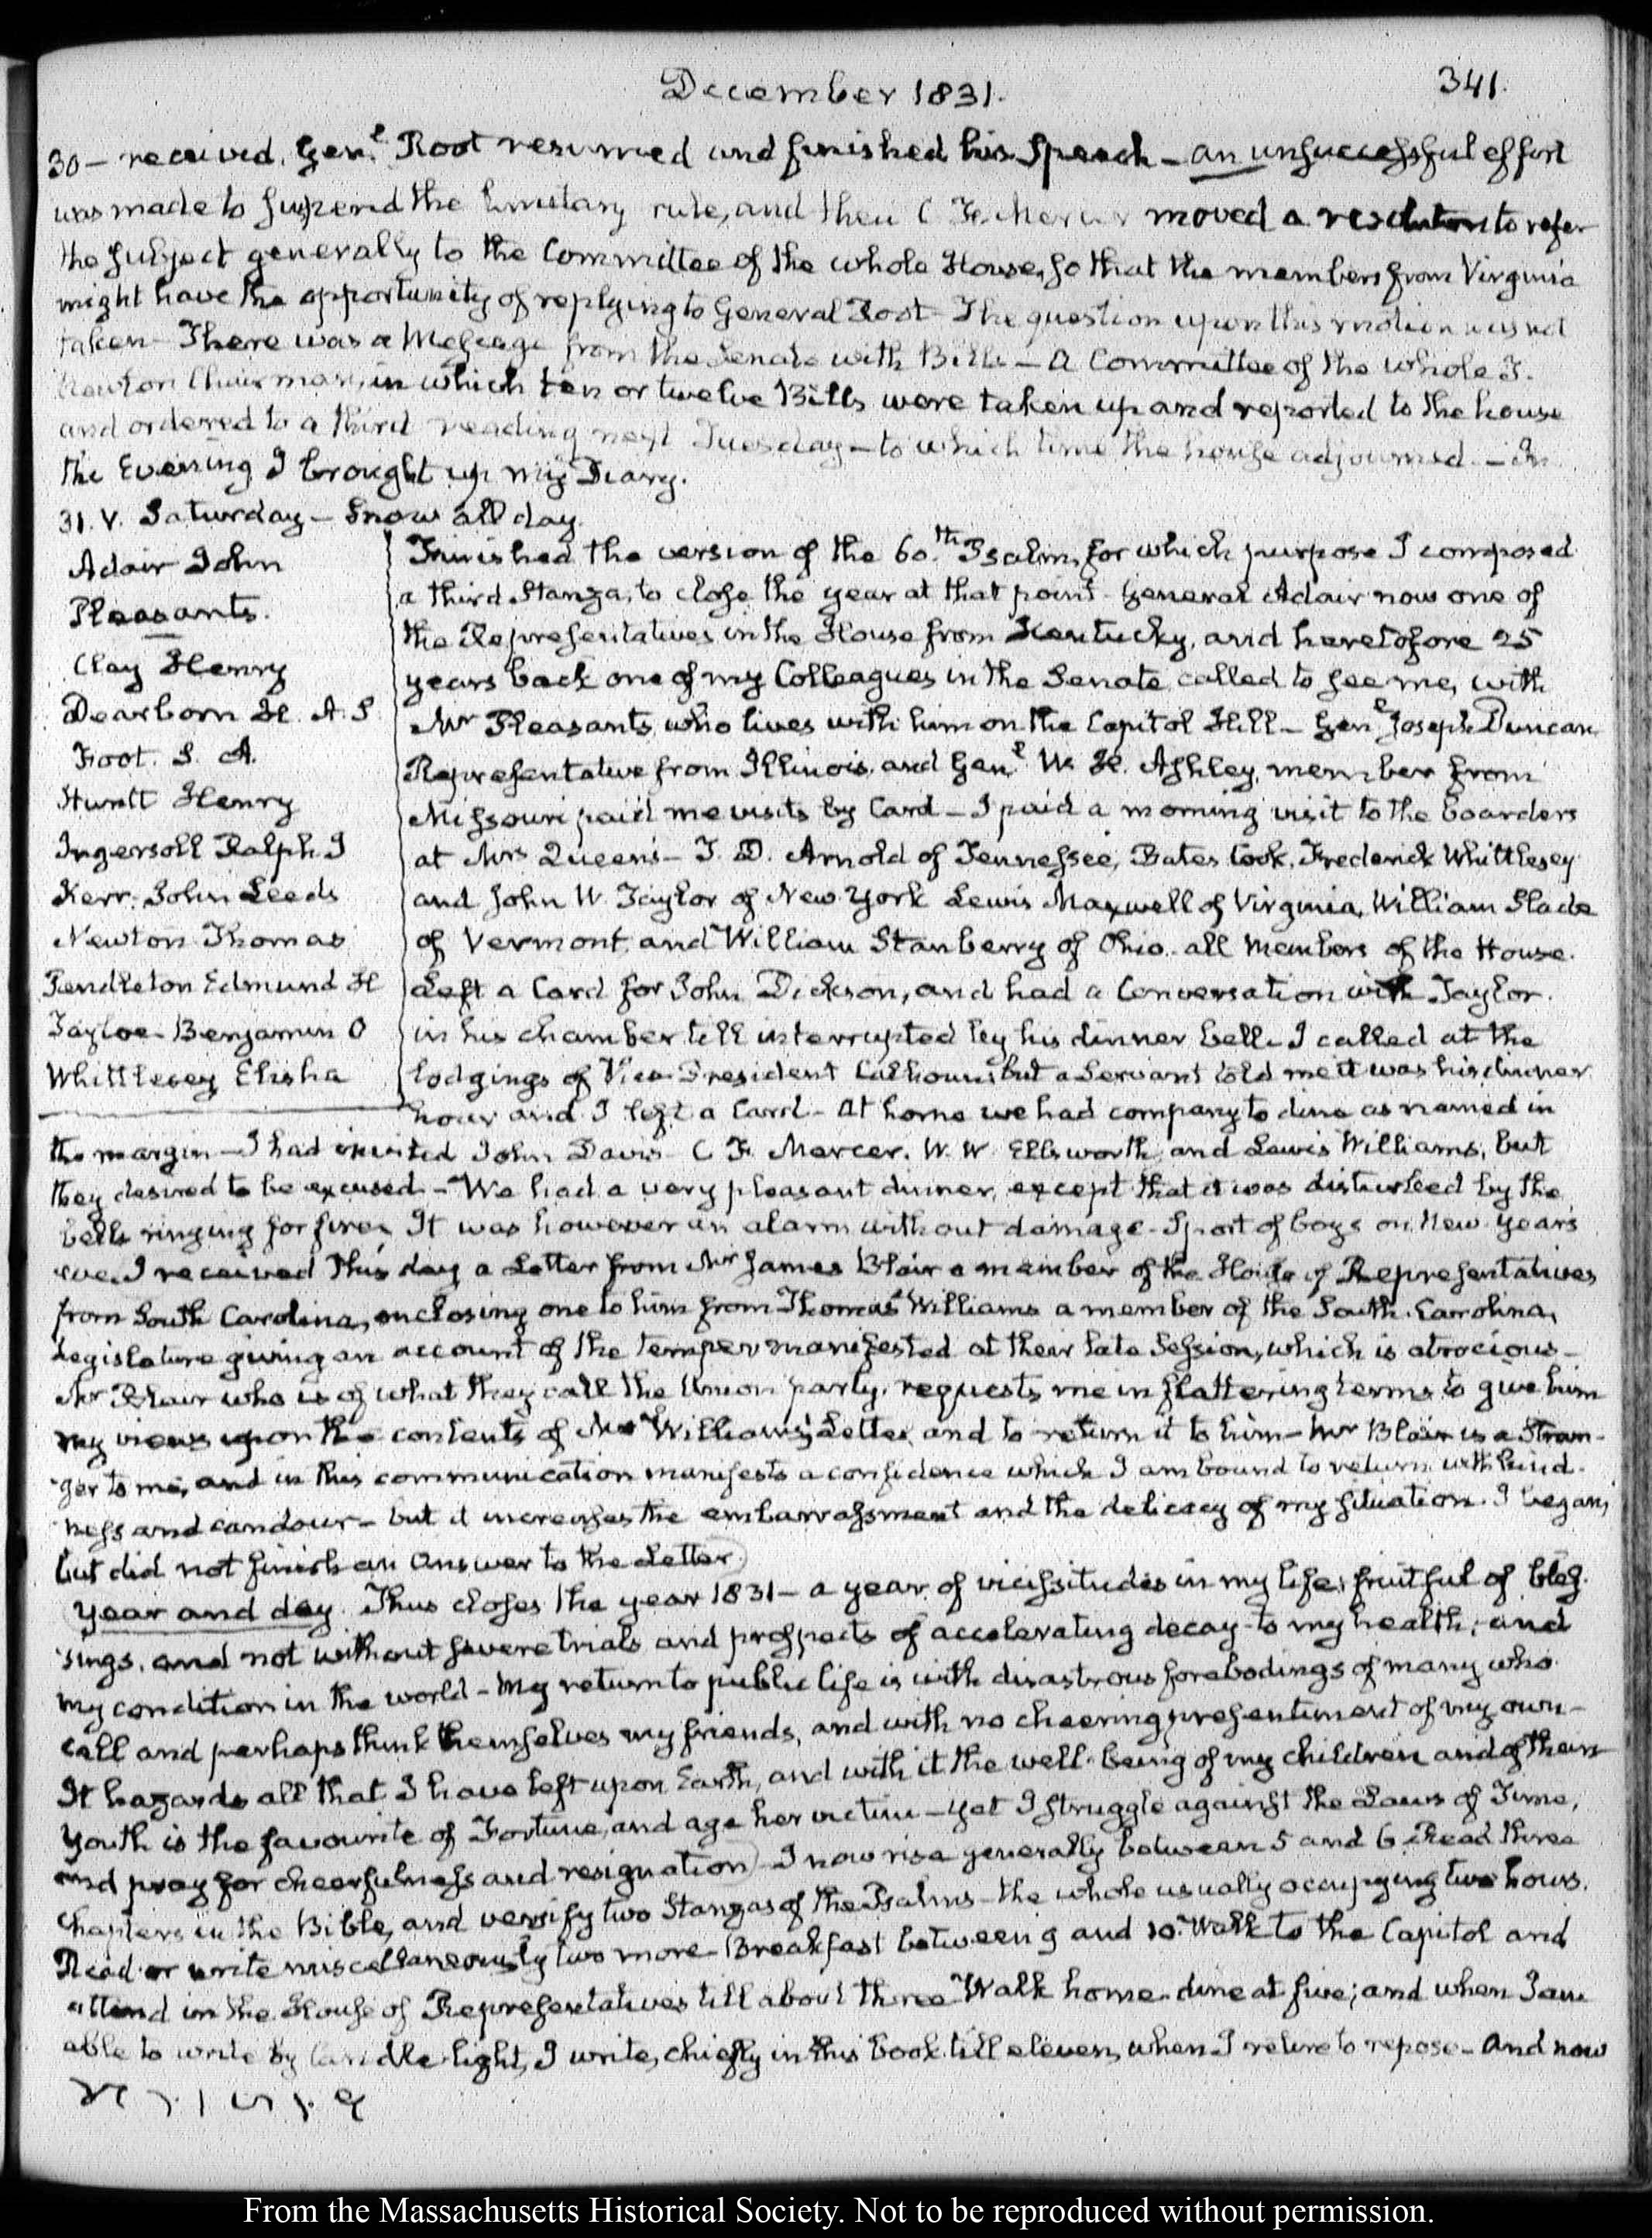 December 1831.
341.
30 — received. Genl. Root resumed and finished his Speech — an unsuccessful effort
was made to suspend the rule, and then C F. Mercer moved a resolution to refer
the subject generally to the Committee of the whole House, so that the members from Virginia
might have the opportunity of replying to General Root — The question upon this motion was not
taken — There was a Message from the Senate with Bills — A Committee of the whole T.
Newton Chairman, in which ten or twelve Bills were taken up and reported to the house
and ordered to a third reading next Tuesday — to which time the house adjourned. — In
the Evening I brought up my Diary.
31. V. Saturday — Snow all day.
Adair John
Pleasants.
Clay Henry
Dearborn H. A. S
Foot. S. A.
Huntt Henry
Ingersoll Ralph. I
Kerr. John Leeds
Newton Thomas
Pendleton Edmund H
Tayloe Benjamin O
Whittlesey Elisha
Finished the version of the 60.th Psalm, for which purpose I composed
a third Stanza, to close the year at that point. General Adair now one of
the Representatives in the House from Kentucky, and heretofore 25
years back one of my Colleagues in the Senate, called to see me, with
Mr Pleasants who lives with him on the Capitol Hill — Genl. Joseph Duncan
Representative from Illinois, and Genl. W. H. Ashley, member from
Missouri paid me visits by Card — I paid a morning visit to the boarders
at Mrs Queen's — T. D. Arnold of Tennessee, Bates Cook, Frederick Whittlesey
and John W. Taylor of New York Lewis Maxwell of Virginia, William Slade
of Vermont, and William Stanberry of Ohio. all Members of the House.
Left a Card for John Dickson, and had a Conversation with Taylor.
in his chamber till interrupted by his dinner bell — I called at the
lodgings of Vice-President Calhoun; but a Servant told me it was his dinner
hour and I left a Card — At home we had company to dine as named in
the margin — I had invited John Davis — C F. Mercer. W. W. Ellsworth, and Lewis Williams, but
they desired to be excused — We had a very pleasant dinner, except that it was disturbed by the
bells ringing for fire. It was however an alarm without damage — Sport of boys on New-years
eve. I received this day a Letter from Mr James Blair a member of the House of Representatives
from South Carolina, enclosing one to him from Thomas Williams a member of the South-Carolina,
Legislature giving an account of the temper manifested at their late Session, which is atrocious —
Mr Blair who is of what they call the Union party, requests me in flattering terms to give him
my views upon the contents of Mr Williams's Letter, and to return it to him — Mr Blair is a Stran-
ger to me, and in this communication manifests a confidence which I am bound to return with kind-
ness and candour — but it increases the embarrassment and the delicacy of my situation. I began,
but did not finish an Answer to the Letter.
Year and day. Thus closes the year 1831 — a year of vicissitudes in my life; fruitful of bles-
sings, and not without severe trials and prospects of accelerating decay to my health, and
my condition in the world — My return to public life is with disastrous forebodings of many who
call and perhaps think themselves my friends, and with no cheering presentiment of my own —
It hazards all that I have left upon Earth, and with it the well-being of my children and of theirs
Youth is the favourite of Fortune, and age her victim — Yet I struggle against the Laws of Time,
and pray for cheerfulness and resignation — I now rise generally between 5 and 6 Read three
Chapters in the Bible, and versify two Stanzas of the Psalms — the whole usually occupying two hours.
Read or write miscellaneously two more — Breakfast between 9 and 10. Walk to the Capitol and
attend in the House of Representatives till about three Walk home. dine at five; and when I am
able to write by Candle-light, I write, chiefly in this book till eleven, when I retire to repose — And now
From the Massachusetts Historical Society. Not to be reproduced without permission.